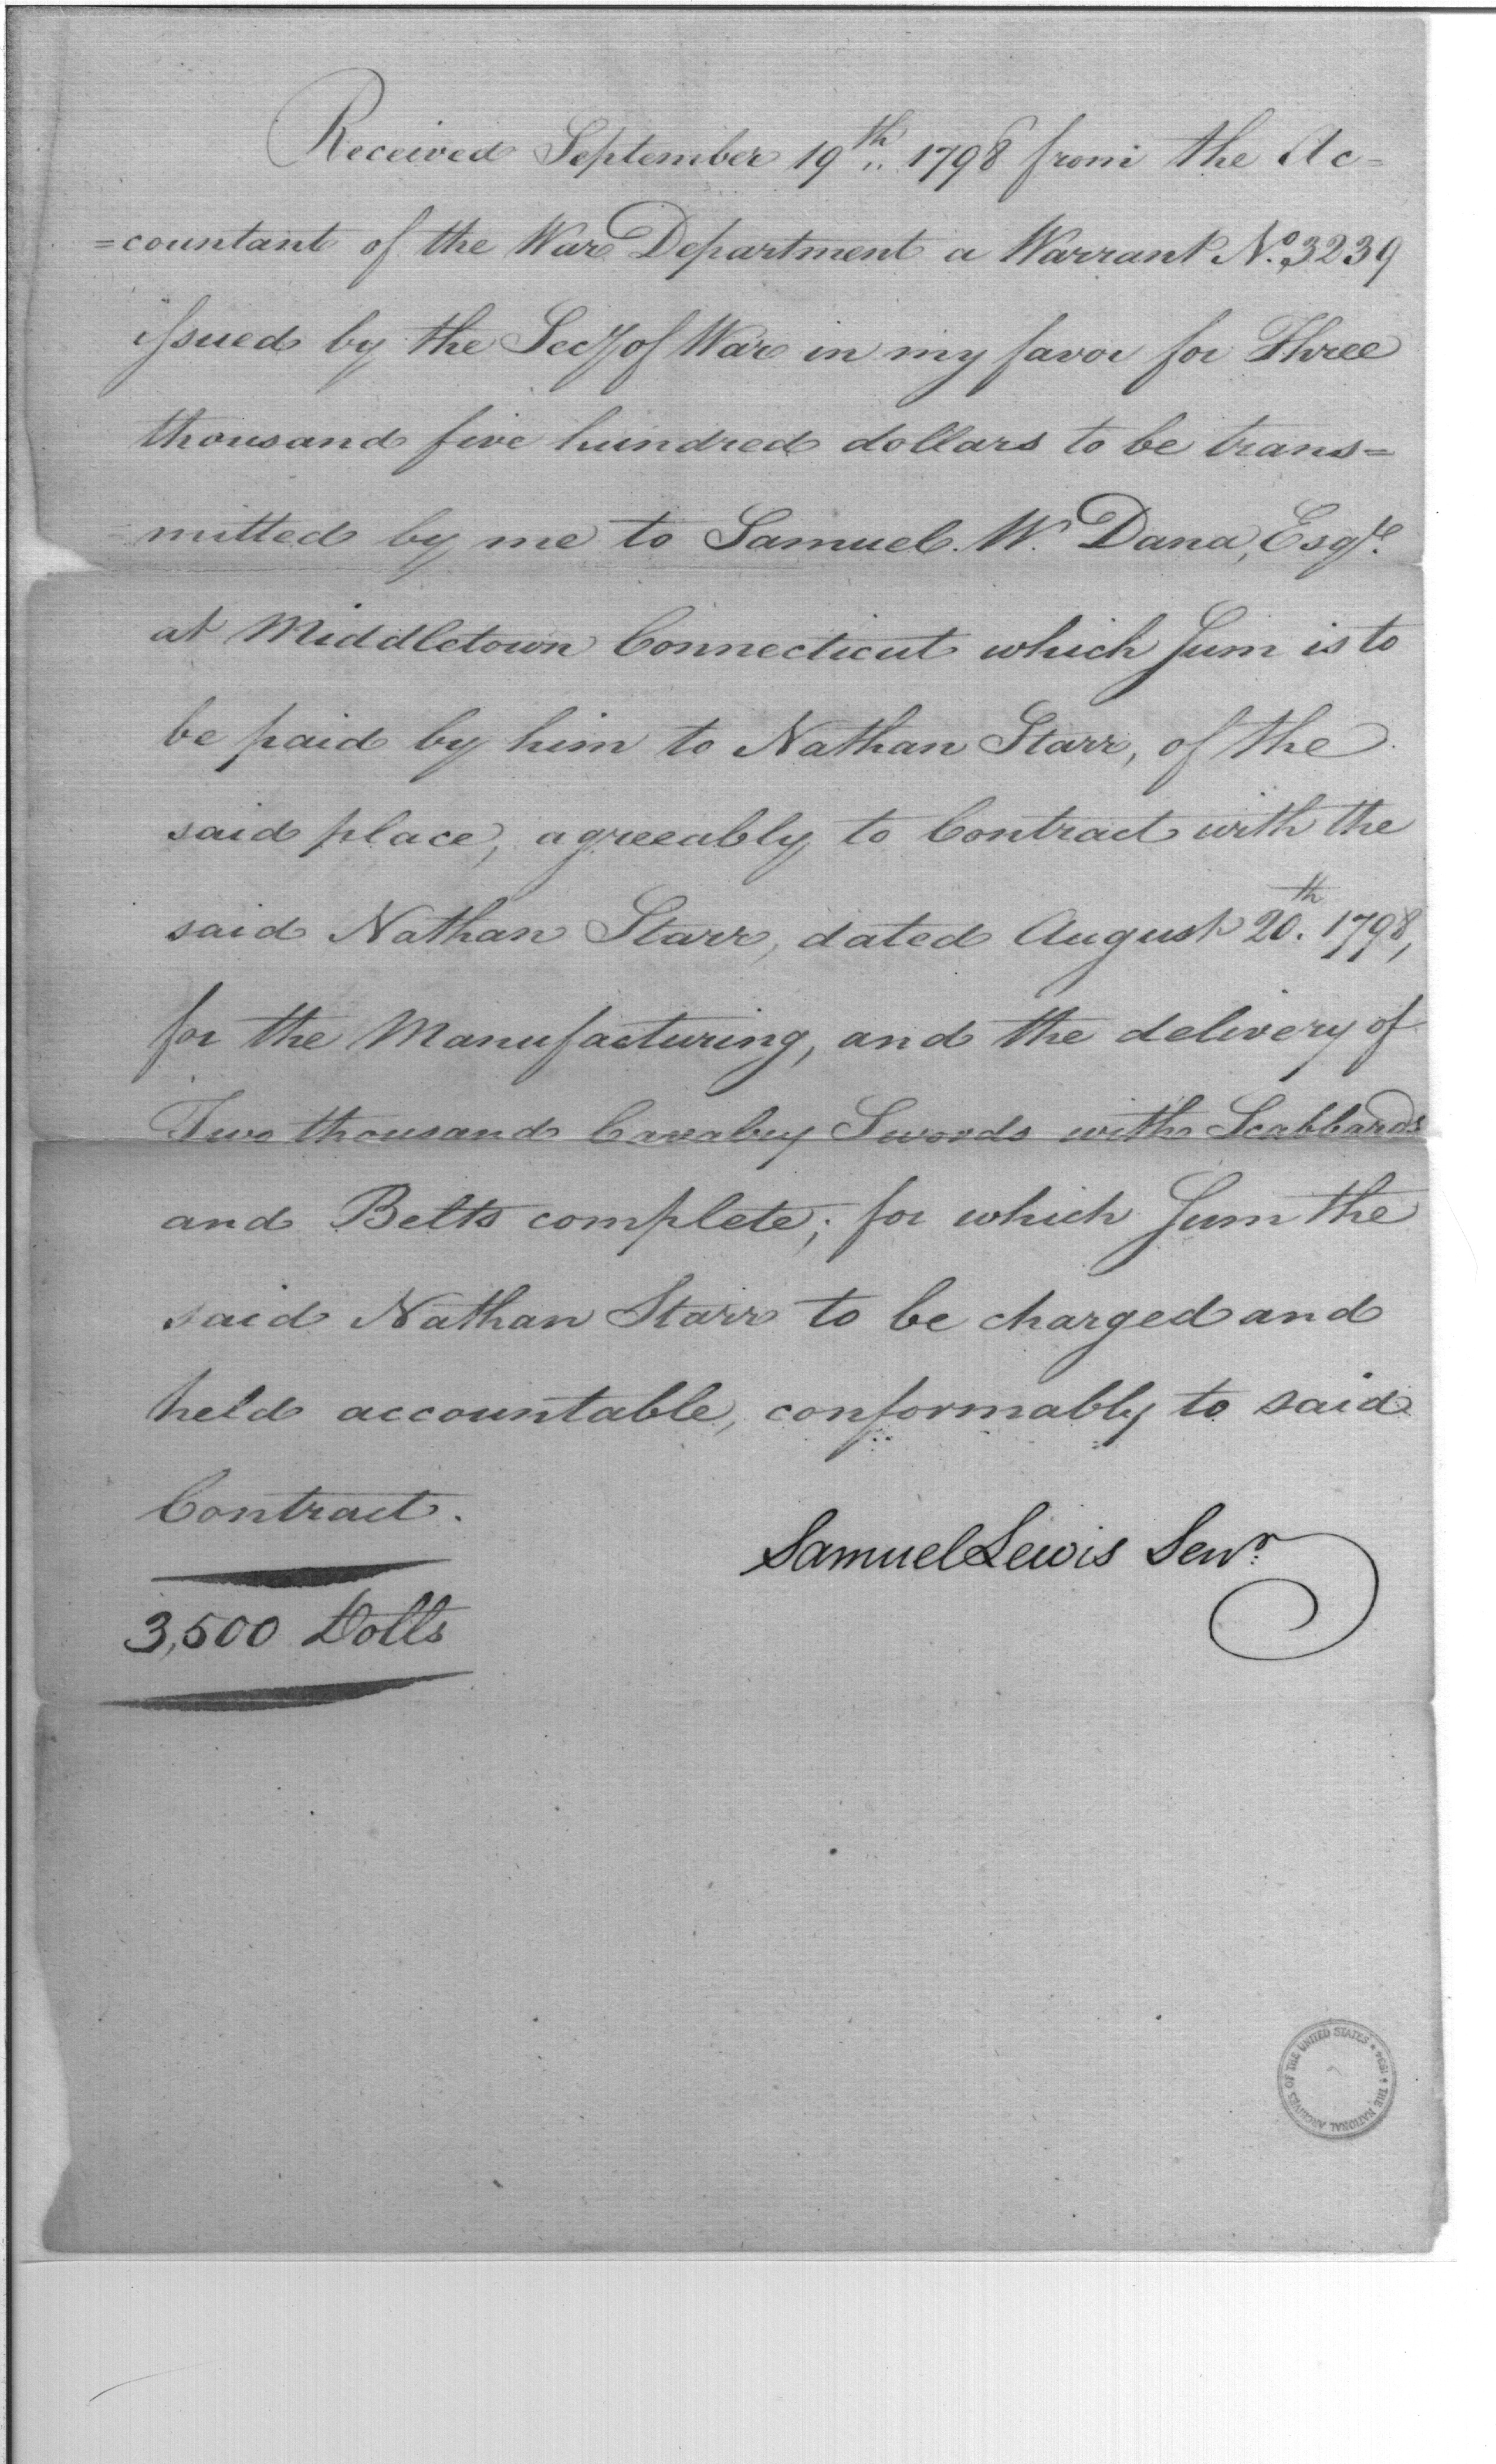 Received September 19th 1798 from the Ac=
=countant of the War Department a Warrant No. 3239
issued by the Secy of War in my favor for Three
thousand five hundred dollars to be trans=
=mitted by me to Samuel. W. Dana, Esqre.
at Middletown Connecticut which Sum is to
be paid by him to Nathan Starr, of the
said place, agreeably to Contract with the
said Nathan Starr, dated August 20th. 1798,
for the Manufacturing, and the delivery of
Two thousand Cavalry Swords with Scabbards
and Belts complete; for which Sum the
said Nathan Starr to be charged and
held accountable, conformably to said
Contract.
Samuel Lewis Senr.
3,500 Dolls
THE NATIONAL ARCHIVES OF THE UNITED STATES * 1934 *